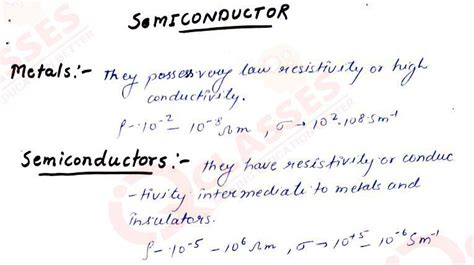 SEMICONDUCTOR
Metals:- They possess very law resistivity or high
conductivity.
ρ- 10⁻² - 10⁻⁸ Ωm , σ → 10²-10⁸ Sm⁻¹
Semiconductors:- they have resistivity or conduc
-tivity intermediate to metals and
insulators.
ρ- 10⁻⁵ - 10⁶ Ωm , σ → 10⁺⁵ - 10⁻⁶ Sm⁻¹
CLASSES